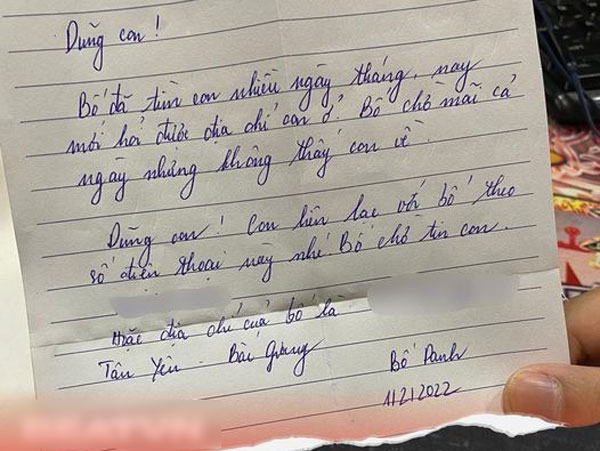 Dũng con!
Bố đã tìm con nhiều ngày tháng, nay
mới hỏi được địa chỉ con ở. Bố chờ mãi cả
ngày nhưng không thấy con về.
Dũng con! Con liên lạc với bố theo
số điện thoại này nhé. Bố chờ tin con.
Hoặc địa chỉ của bố là:
Tân Yên - Bắc Giang
Bố Danh
11/2/2022